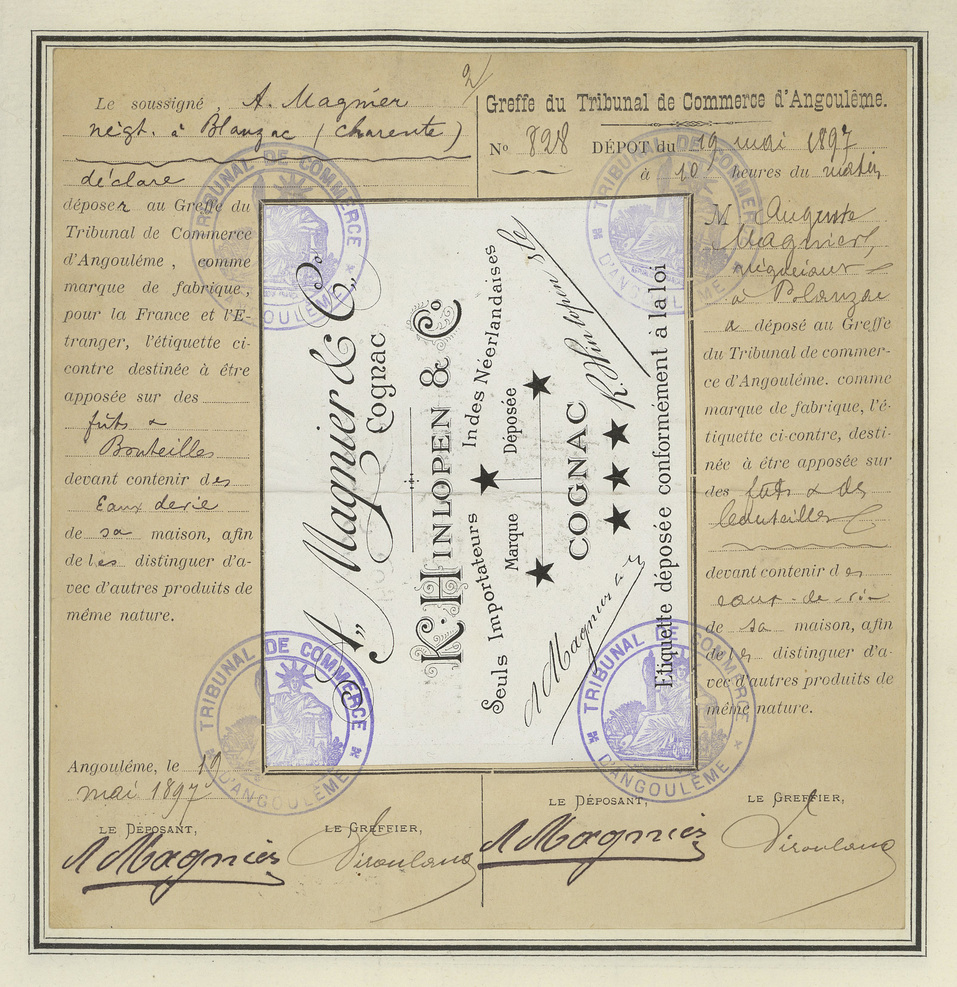 2/
Le soussigné, A. Magnier
négt. à Blanzac (charente)
déclare
déposer au Greffe du
Tribunal de Commerce
d'Angoulême, comme
marque de fabrique,
pour la France et l'E-
tranger, l'étiquette ci-
contre destinée à être
apposée sur des
fûts &
Bouteilles
devant contenir des
Eaux de vie
de sa maison, afin
de les distinguer d'a-
vec d'autres produits de
même nature.
Angoulême, le 19
mai 1897
LE DÉPOSANT,
LE GREFFIER,
A Magnier
A. Magnier & Co.
Cognac
K. HINLOPEN & Co
Seuls Importateurs ★ Indes Néerlandaises
Marque Déposée
★ ★
COGNAC
★ ★ ★
A Magnier & Co
K. Hinlopen & Co
Etiquette déposée conformément à la loi
Greffe du Tribunal de Commerce d'Angoulême.
No 828 DÉPOT du 19 mai 1897
à 10 heures du matin
M. Auguste
Magnier,
négociant
à Blanzac
a déposé au Greffe
du Tribunal de commer-
ce d'Angoulême. comme
marque de fabrique, l'é-
tiquette ci-contre, desti-
née à être apposée sur
des fûts & des
bouteilles
devant contenir des
eaux-de-vie
de sa maison, afin
de les distinguer d'a-
vec d'autres produits de
même nature.
LE DÉPOSANT,
LE GREFFIER,
A Magnier
TRIBUNAL DE COMMERCE
D'ANGOULÊME
TRIBUNAL DE COMMERCE
D'ANGOULÊME
TRIBUNAL DE COMMERCE
D'ANGOULÊME
TRIBUNAL DE COMMERCE
D'ANGOULÊME